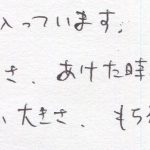 入っています。
さ、あけた時
い大きさ、もら